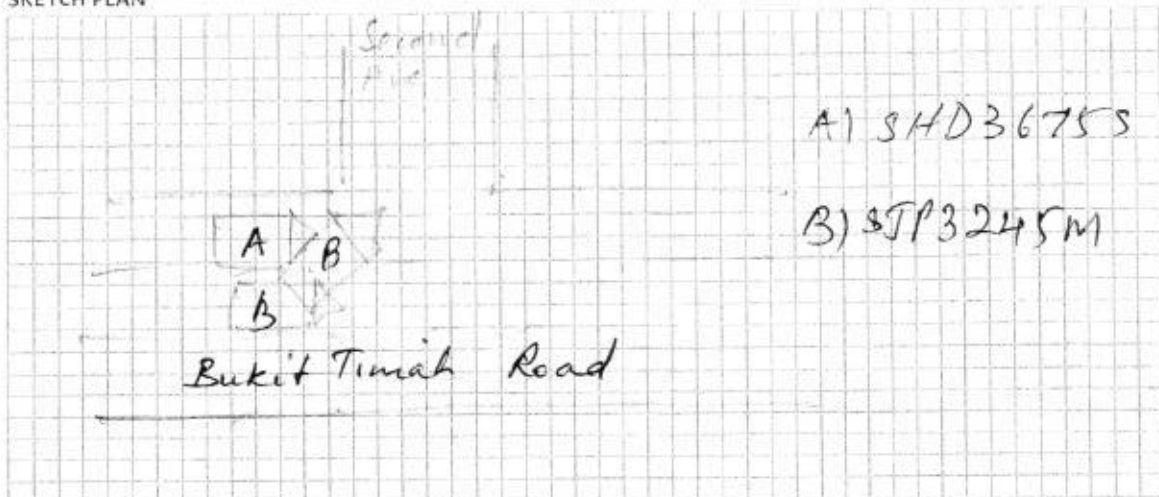 SKETCH PLAN
Second
Ave
A) SHD3675S
B) SJP3245M
A
B
B
Bukit Timah Road